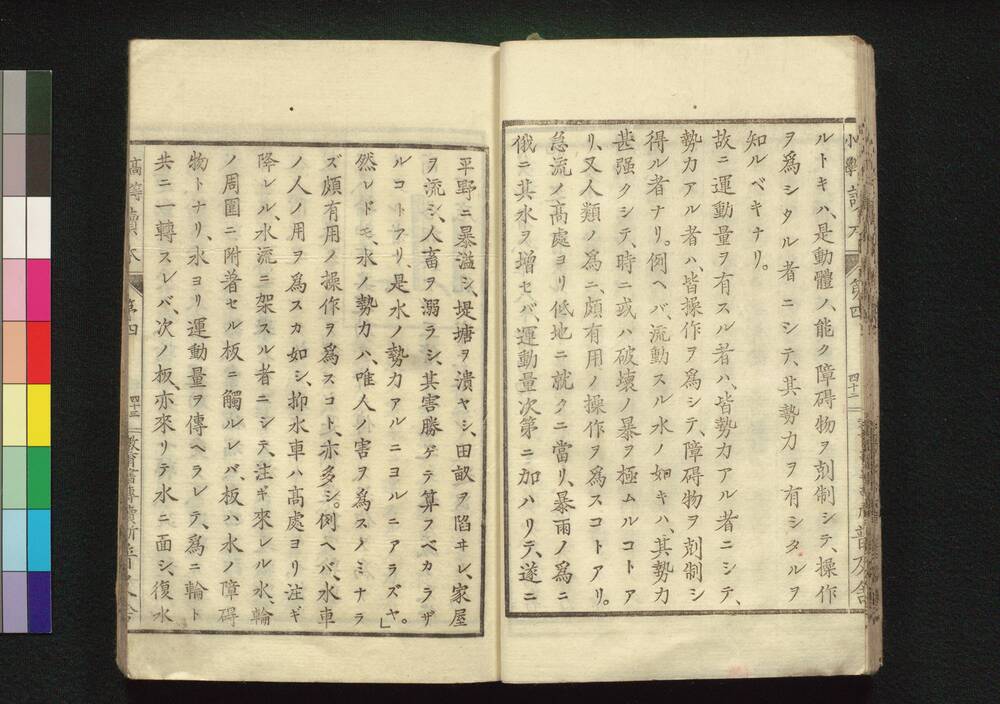 小學讀本
第四
四十二
普及舍
ルトキハ、是動體ノ、能ク障碍物ヲ剋制シテ、操作
ヲ爲シタル者ニシテ、其勢力ヲ有シタルヲ
知ルベキナリ。
故ニ運動量ヲ有スル者ハ、皆勢力アル者ニシテ、
勢力アル者ハ、皆操作ヲ爲シテ、障碍物ヲ剋制シ
得ル者ナリ。例ヘバ、流動スル水ノ如キハ、其勢力
甚强クシテ、時ニ或ハ破壞ノ暴ヲ極ムルコトア
リ、又人類ノ爲ニ、頗有用ノ操作ヲ爲スコトアリ。
急流ノ高處ヨリ低地ニ就クニ當リ、暴雨ノ爲ニ
俄ニ其水ヲ增セバ、運動量次第ニ加ハリテ、遂ニ
平野ニ暴溢シ、堤塘ヲ潰ヤシ、田畝ヲ陷ヰレ、家屋
ヲ流シ、人畜ヲ溺ラシ、其害勝ゲテ算フベカラザ
ルコトアリ、是水ノ勢力アルニヨルニアラズヤ。」
然レドモ、水ノ勢力ハ、唯人ノ害ヲ爲スノミナラ
ズ、頗有用ノ操作ヲ爲スコト、亦多シ。例ヘバ、水車
ノ人ノ用ヲ爲スカ如シ、抑水車ハ高處ヨリ注ギ
降レル、水流ニ架スル者ニシテ、注ギ來レル水、輪
ノ周圍ニ附著セル板ニ觸ルレバ、板ハ水ノ障碍
物トナリ、水ヨリ運動量ヲ傳ヘラレテ、爲ニ輪ト
共ニ一轉スレバ、次ノ板、亦來リテ水ニ面シ、復水
高等讀本
第四
四十三
教育書專賣所普及舍